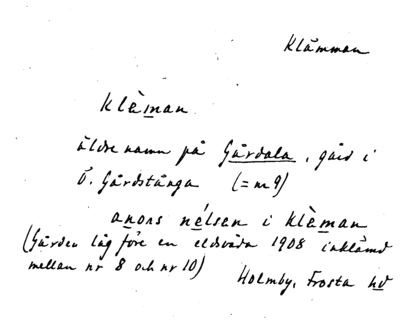 Klämman
klèman
äldre namn på Gårdala, gård i
Ö. Gårdstånga (= nr 9)
anons nélsen i klèman
(Gården låg före en eldsvåda 1908 inklämd
mellan nr 8 och nr 10)
Holmby, Frosta hd